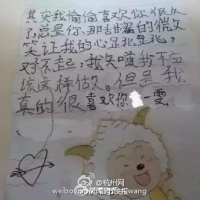 其实我偷偷喜欢你很久
了,总是你那走耀的微
笑让我的心里乱乱,
对不起,我知道我不应
该这样做。但是我
真的很喜欢你 一雯
杭州网